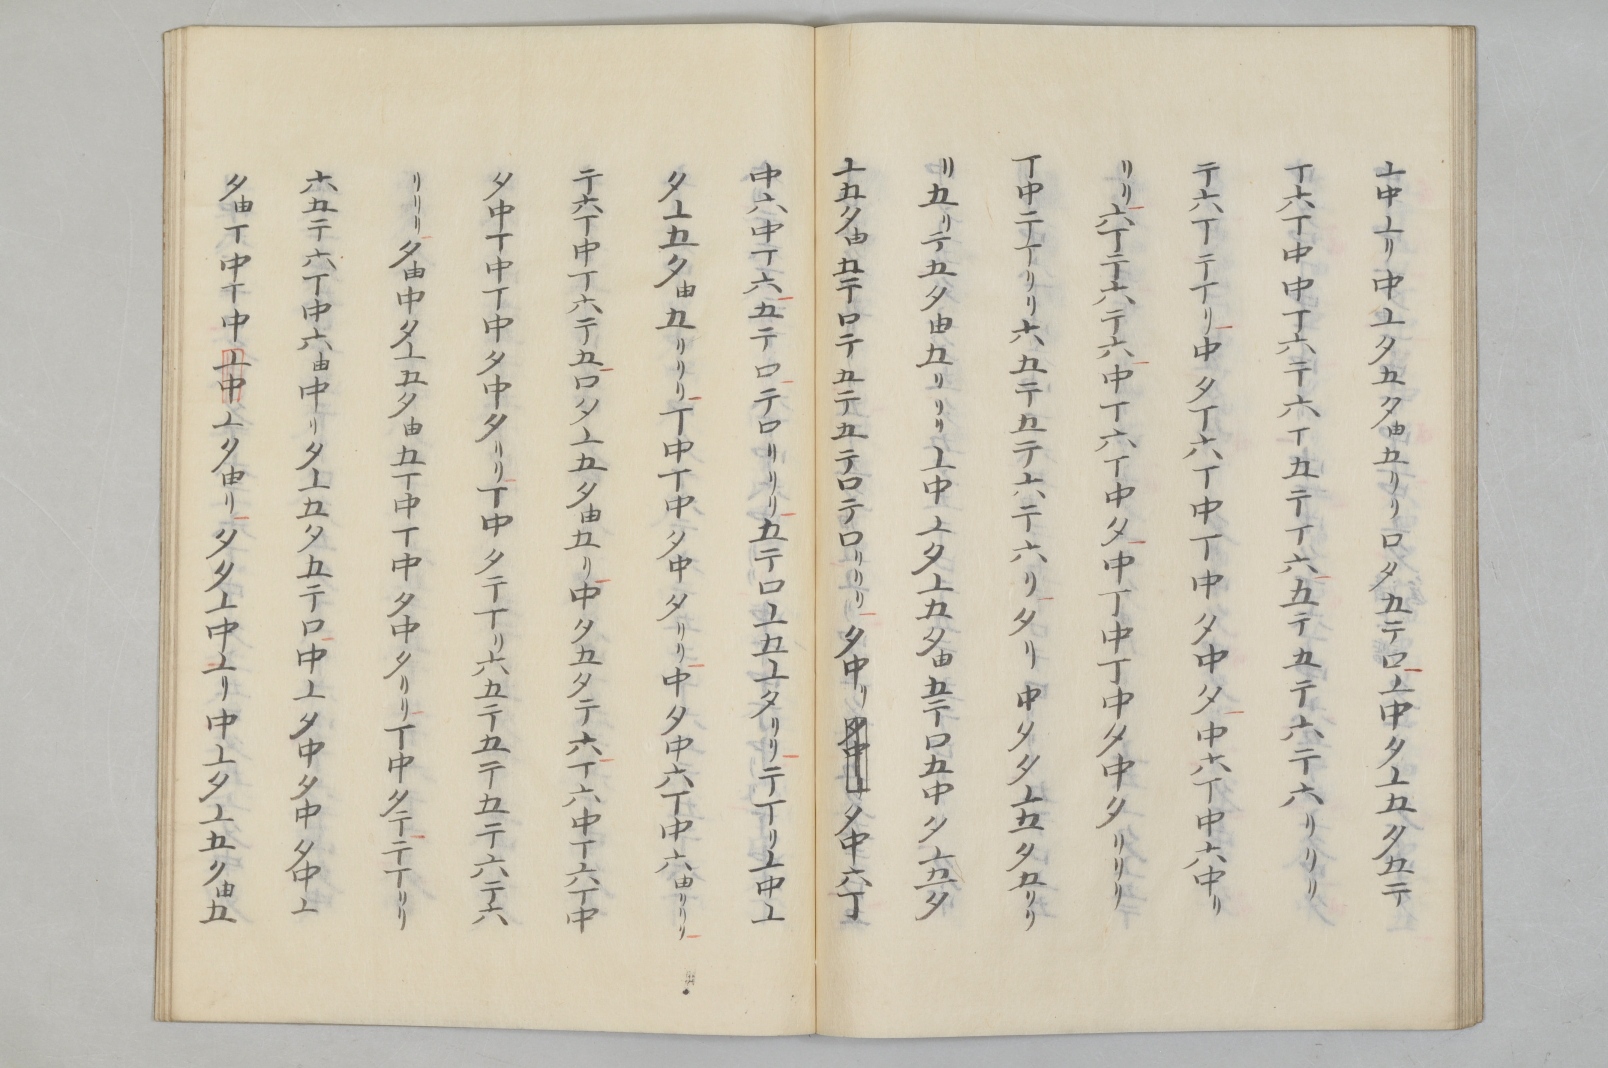 上中上リ中上夕五夕由五リリロ夕五テロ上中夕上五夕五テ
丅六丅中中丁六テ六丅五テ丅六五テ五テ六テ六リリリ
テ六丅テ丅リ中夕丁六丅中丅中夕中夕中六丅中六中リ
リリ六丁テ六テ六中丅六丅中夕中丁中丁中夕中夕リリリ
丅中テ丅リリ六五テ五テ六テ六リ夕リ中夕夕上五夕五リリ
リ五リテ五夕由五リリリ上中上夕上五夕由五テロ五中夕上五夕
上五夕由五テロテ五テ五テロテロリリリ夕中リ夕中六丁
中六中丅六五テロテロリリリ五テロ上五上夕リリテ丅リ上中上
夕上五夕由五リリリ丅中丅中夕中夕リリ中夕中六丅中六由リリリ
テ六丅中丅六テ五ロ夕上五夕由五リ中夕五夕テ六丅六中丅六丅中
夕中丅中丅中夕中夕リリ丅中夕テ丅リ六五テ五テ五テ六テ六
リリリ夕由中夕上五夕由五丅中丅中夕中夕リリ丅中夕テテ丅リリ
六五テ六丅中六由中リ夕上五夕五テロ中上夕中夕中夕中上
夕由丅中丅中上中上夕由リ夕夕上中上リ中上夕上五夕由五